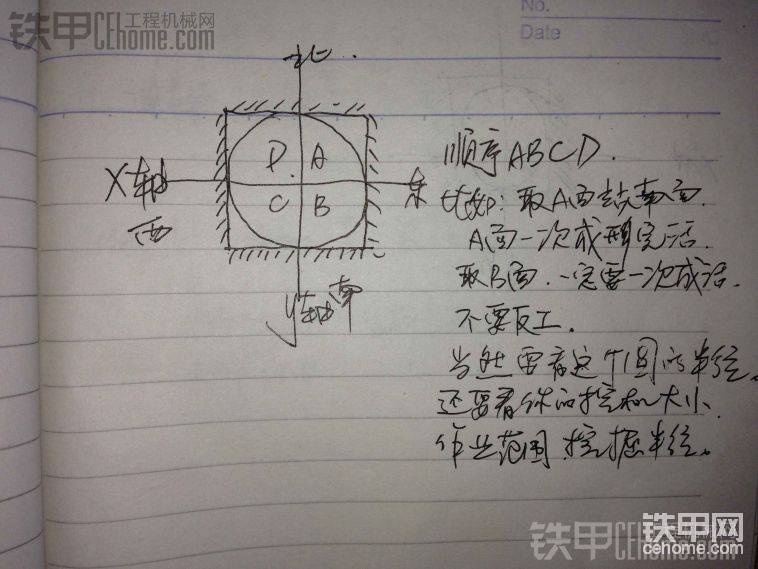 铁甲 工程机械网
CEhome.com
No.
Date
北
顺序ABCD.
X轴
D A
东
西
C B
比如：取A面站南面.
A面一次成型完活.
取B面.一定要一次成活.
y轴 南
不要反工.
当然要看这个圆的半径。
还要看你的挖机大小.
作业范围 挖掘半径。
铁甲CEhome
铁甲网
cehome.com